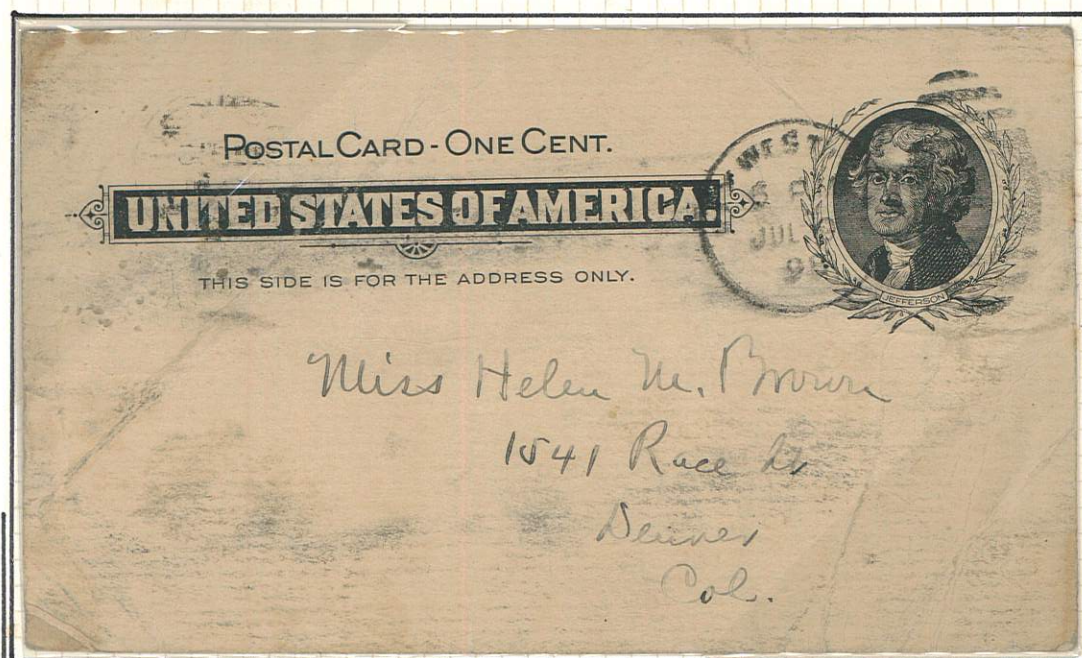 POSTAL CARD - ONE CENT.
UNITED STATES OF AMERICA.
THIS SIDE IS FOR THE ADDRESS ONLY.
WEST
JUL
JEFFERSON
Miss Helen M. Brown
1541 Race St
Denver
Col.